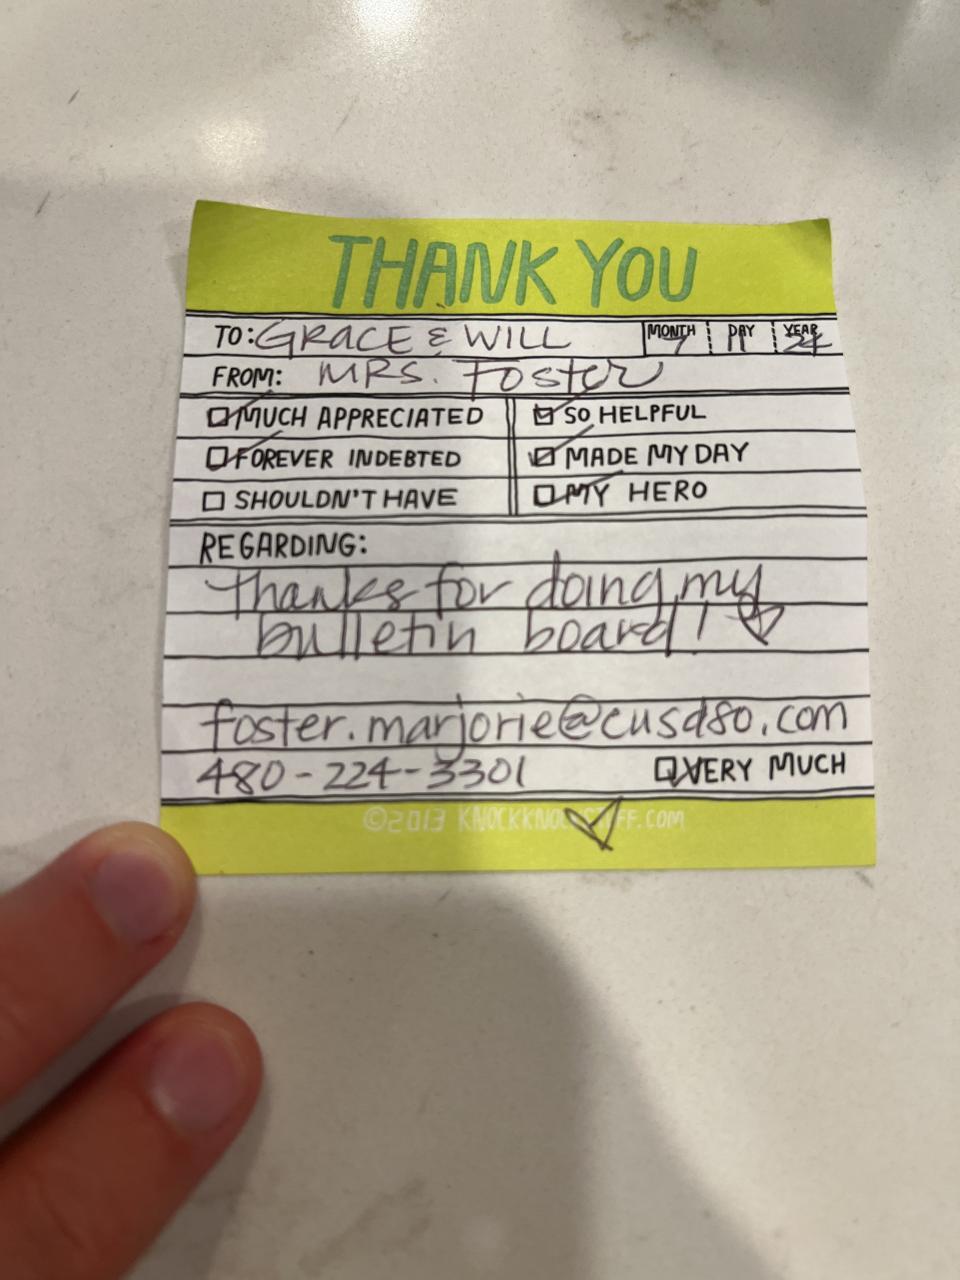 THANK YOU
TO: GRACE & WILL MONTH 7 DAY 11 YEAR 24
FROM: MRS. FOSTER
MUCH APPRECIATED SO HELPFUL
FOREVER INDEBTED MADE MY DAY
SHOULDN'T HAVE MY HERO
REGARDING:
Thanks for doing my
bulletin board!
foster.marjorie@cusd80.com
480-224-3301 VERY MUCH
©2013 KNOCKKNOCKSTUFF.COM